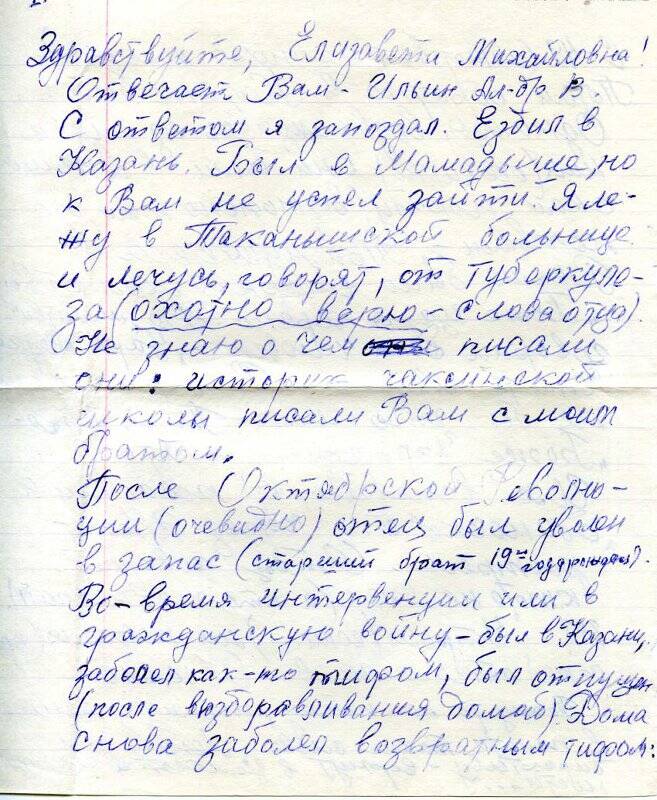 Здравствуйте, Елизавета Михайловна!
Отвечает Вам - Ильин Ал-др В.
С ответом я запоздал. Ездил в
Казань. Был в Мамадыше, но
к Вам не успел зайти. Я ле-
жу в Таканышской больнице
и лечусь, говорят, от туберкуле-
за (охотно верю - слова отца).
Не знаю о чем писали
они: историк чаксинской
школы писали Вам с моим
братом.
После Октябрской Револю-
ции (очевидно) отец был уволен
в запас (старший брат 19го года рождения).
Во-время интервенции или в
гражданскую войну - был в Казани,
заболел как-то тифом, был отпущен
(после выздоравливания домой). Дома
снова заболел возвратным тифом: